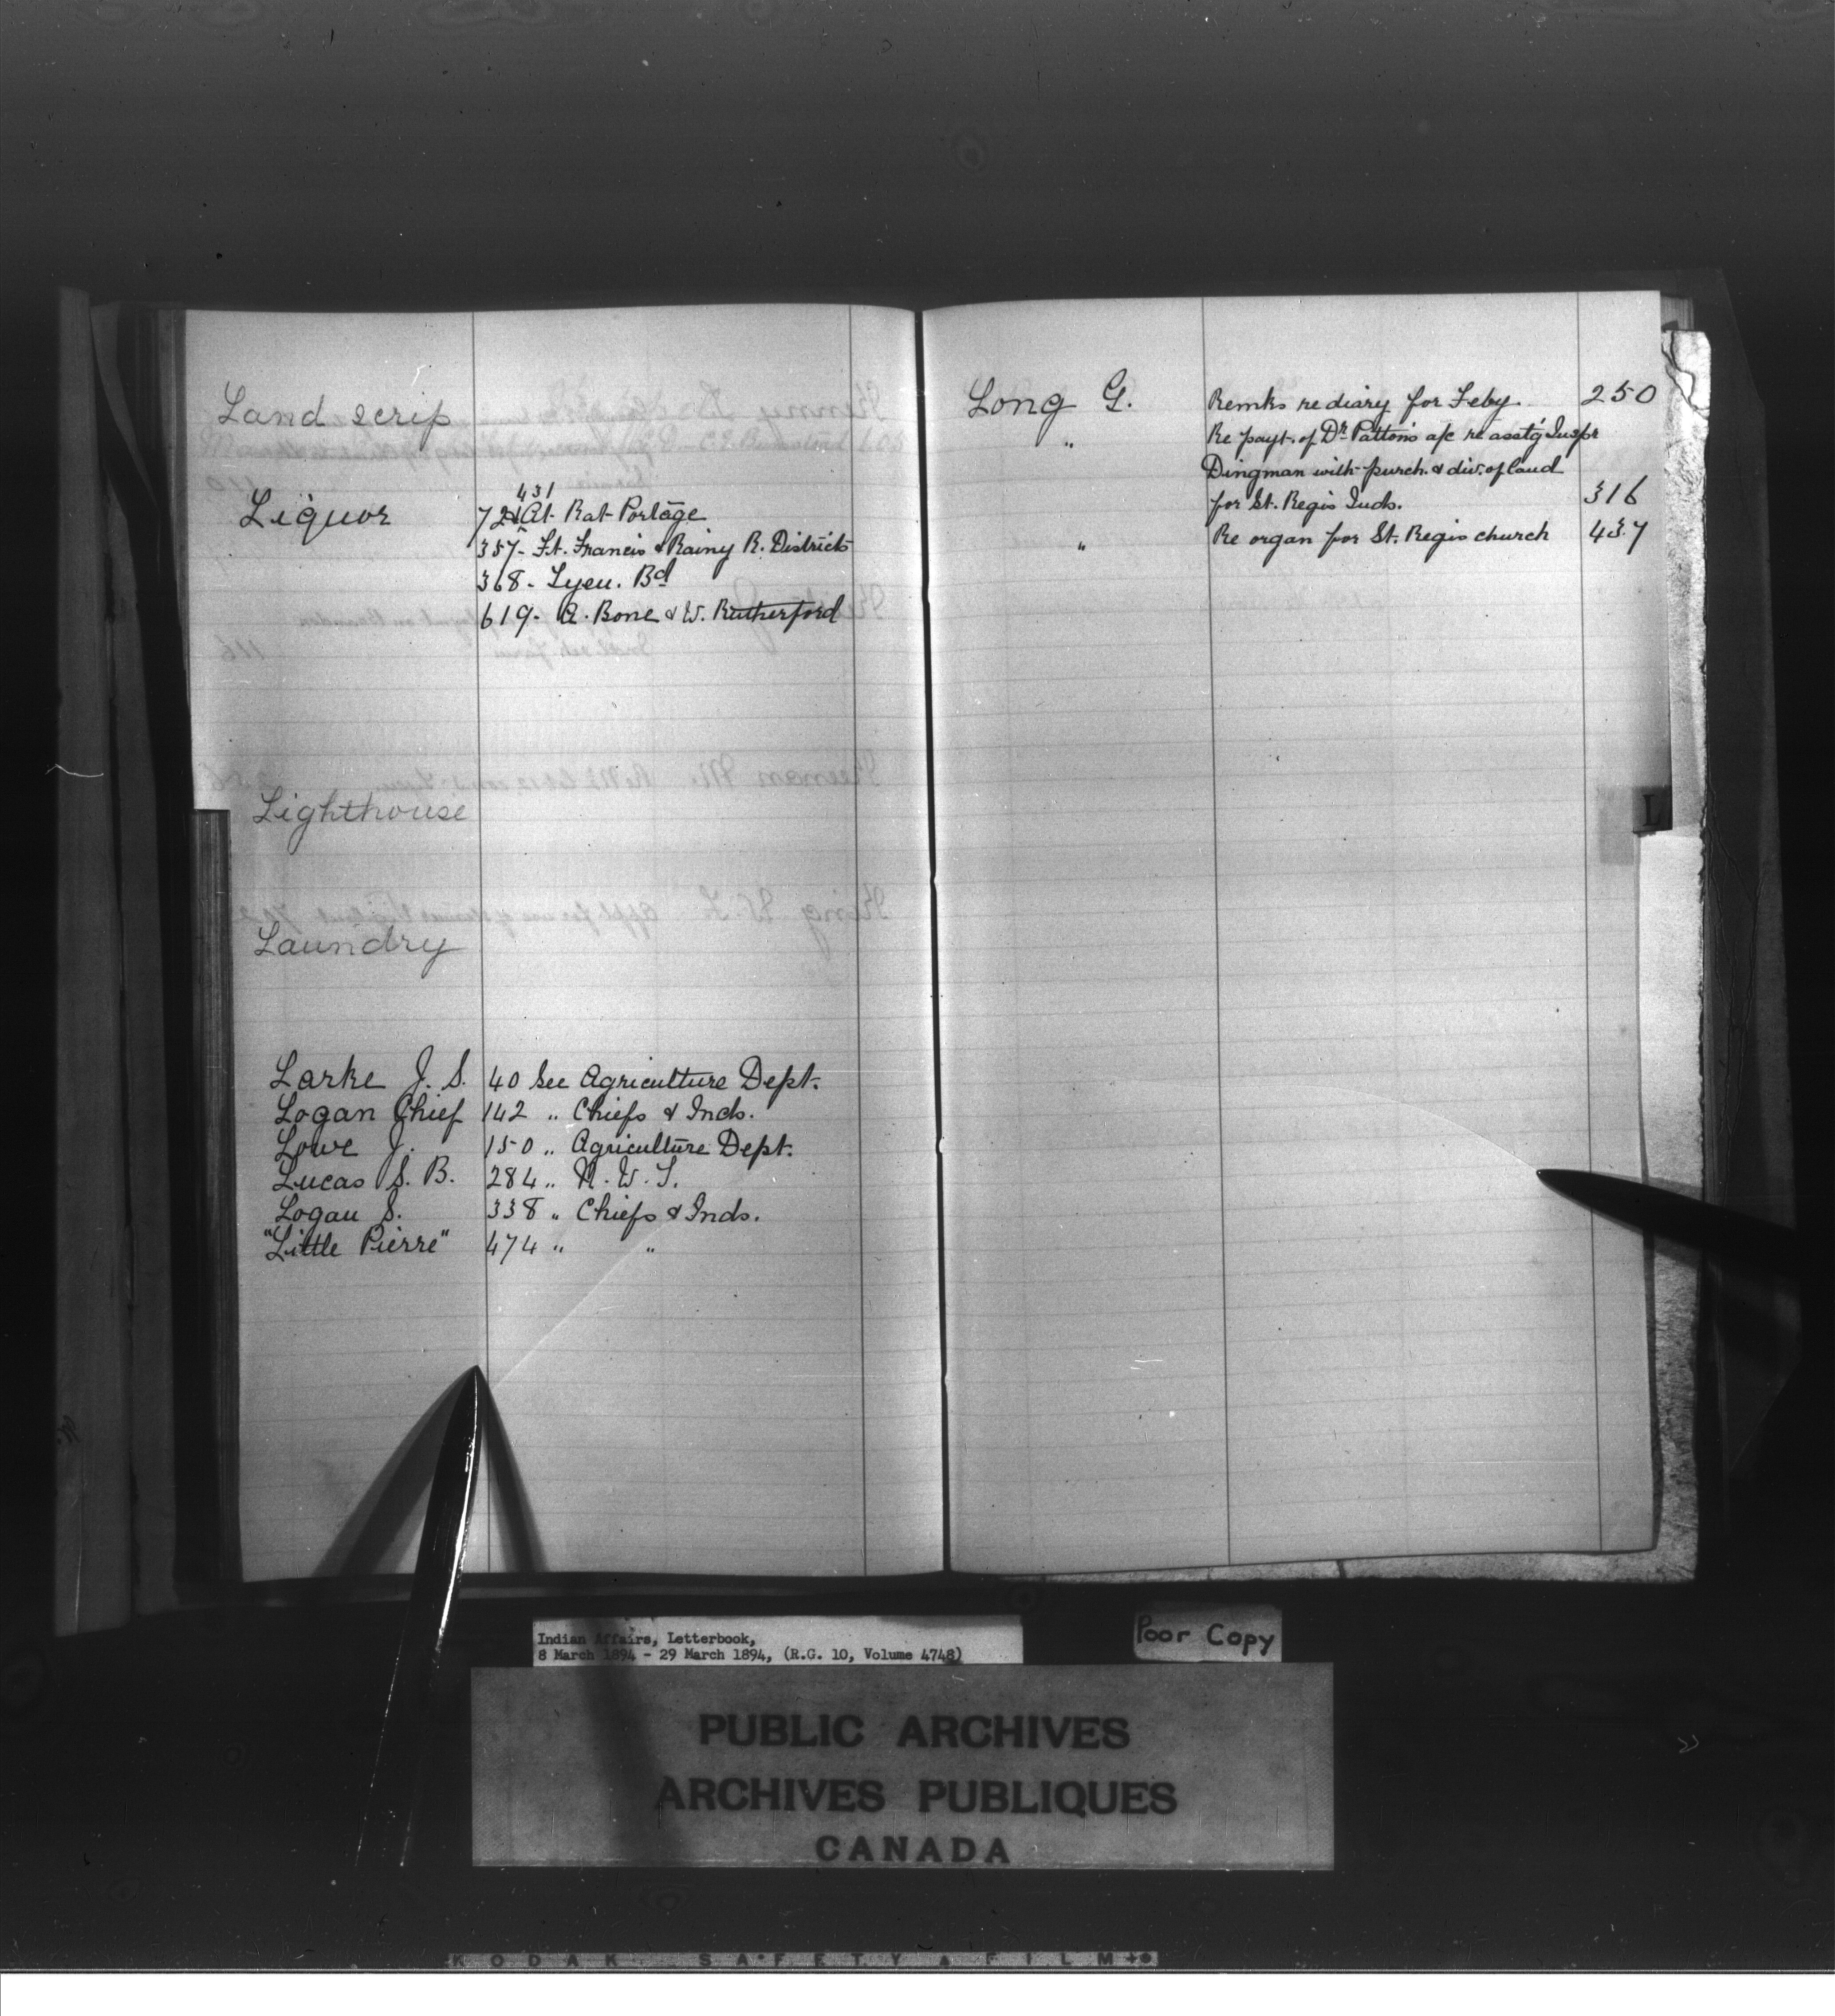 Land scrip
Liquor
431
72 At Rat Portage
357- Ft. Francis & Rainy R. Districts
368- Tyen. Bd
619- A. Bone & W. Rutherford
Lighthouse
Laundry
Larke J. S. 40 See Agriculture Dept.
Logan Chief 142 " Chiefs & Inds.
Lowe J. 150 " Agriculture Dept.
Lucas S. B. 284 " N. W. T.
Logan S. 338 " Chiefs & Inds.
"Little Pierre" 474 " "
Long G. Remks re diary for Feby. 250
" Re payt. of Dr Patton's a/c re asst'g Inspr
Dingman with purch. & div. of land
for St. Regis Inds. 316
" Re organ for St. Regis church 437
L
Indian Affairs, Letterbook,
8 March 1894 - 29 March 1894, (R.G. 10, Volume 4748)
Poor Copy
PUBLIC ARCHIVES
ARCHIVES PUBLIQUES
CANADA
KODAK SAFETY FILM